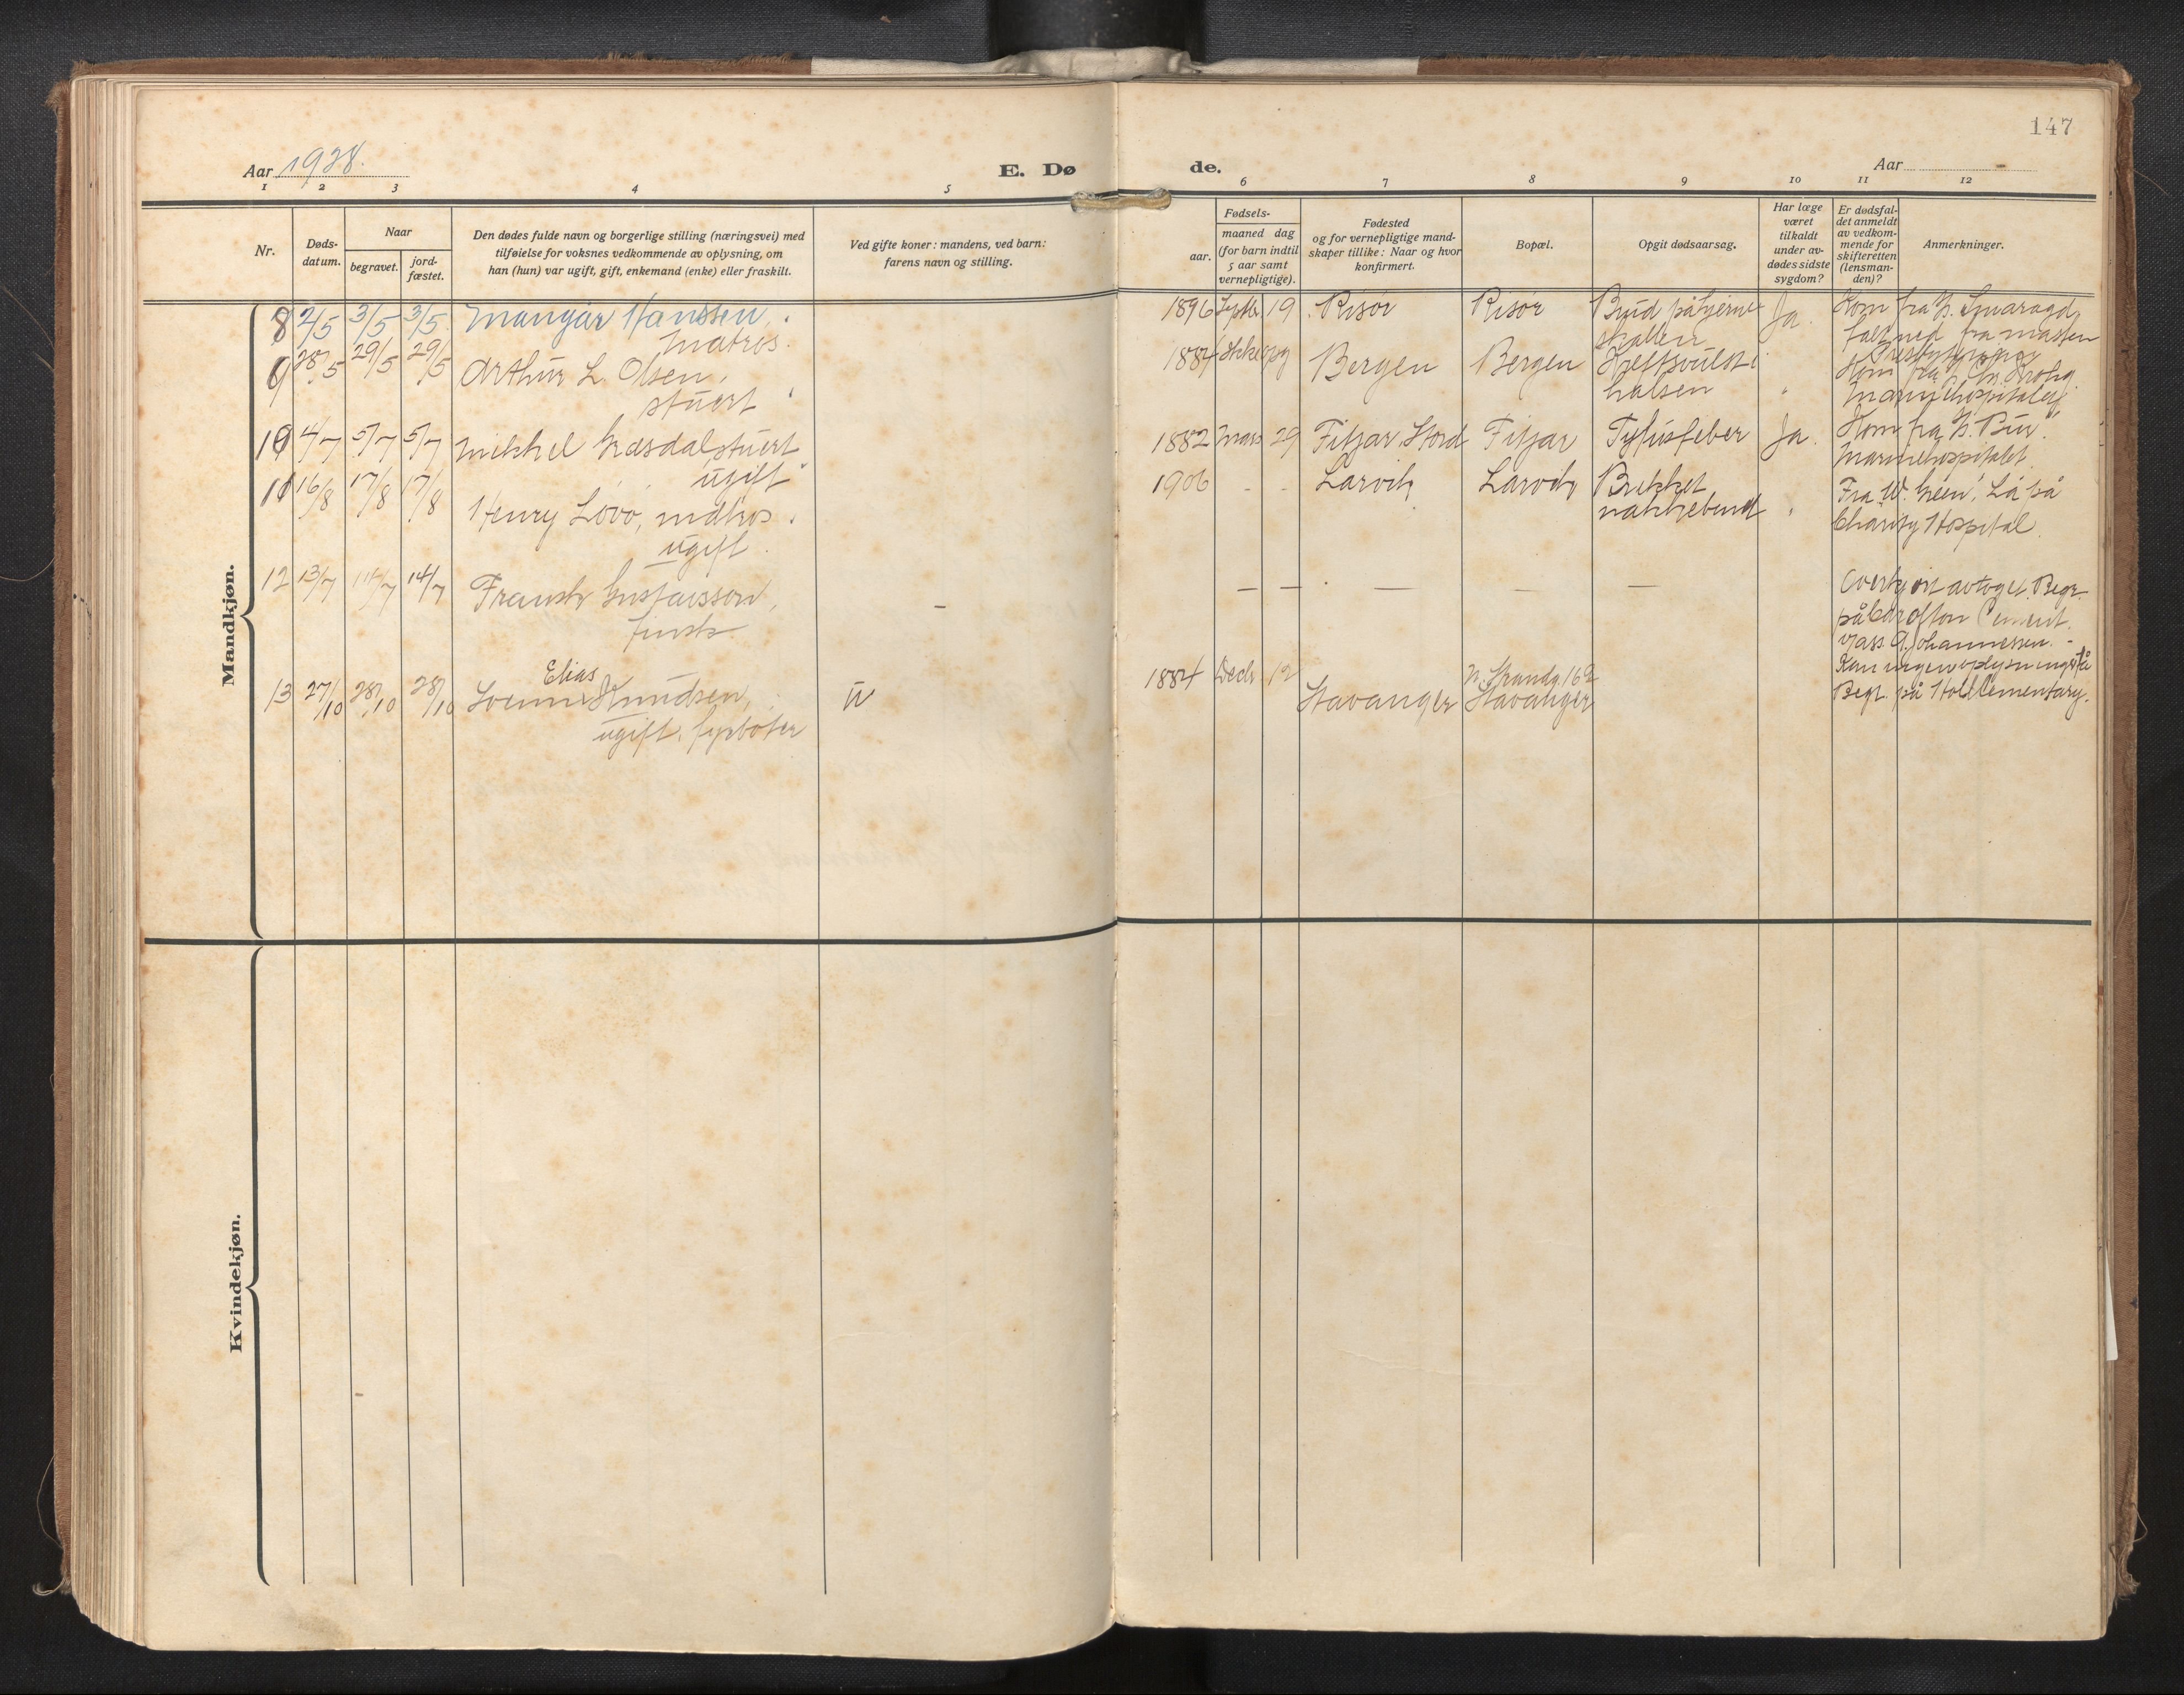 147
Aar 1928.
E. Dø
de.
Aar
1 2 3 4 5 6 7 8 9 10 11 12
Nr.
Døds-
datum.
Naar
begravet.
jord-
fæstet.
Den dødes fulde navn og borgerlige stilling (næringsvei) med
tilføielse for voksnes vedkommende av oplysning, om
han (hun) var ugift, gift, enkemand (enke) eller fraskilt.
Ved gifte koner: mandens, ved barn:
farens navn og stilling.
Fødsels-
aar.
maaned dag
(for barn indtil
5 aar samt
vernepligtige).
Fødested
og for vernepligtige mand-
skaper tillike: Naar og hvor
konfirmert.
Bopæl.
Opgit dødsaarsag.
Har læge
været
tilkaldt
under av-
dødes sidste
sygdom?
Er dødsfal-
det anmeldt
av vedkom-
mende for
skifteretten
(lensman-
den)?
Anmerkninger.
Mandkjøn.
8 2/5 3/5 3/5 Hanssen,
matros.
1896 Septbr 19 Risør Risør Brud på hjerne-
skallen
Ja.
Kom fra Smaragd,
falt ned fra masten
9 28/5 29/5 29/5 Arthur L Olsen,
stuert
1884 Bergen Bergen Kreftsvulst i
halsen "
Kom fra Chr. Krohg.
Marinehospitalet
10 4/7 5/7 5/7 Mikkel stuert
ugift
1882 Mars 29 Fitjar Stord Fitjar Tyfusfeber Ja.
Kom fra
Marinehospitalet.
11 16/8 17/8 17/8 Henry Lovo, matros.
ugift.
1906 - - Larvik Larvik Brekket
nakkebend "
Fra W. Lå på
Charity Hospital.
12 13/7 14/7 14/7 Fransk Gustavsson,
finsk.
-
— — — — —
Overkjørt av toget. Begr.
på
v/ass. G. Johannessen. -
Kan ingen oplysninger få
13 27/10 28/10 28/10 Elias Knudsen,
ugift. fyrbøter
1884 Decbr 12 Stavanger
N. Strandg. 162
Stavanger
Begr. på Holt Cementary.
Kvindekjøn.